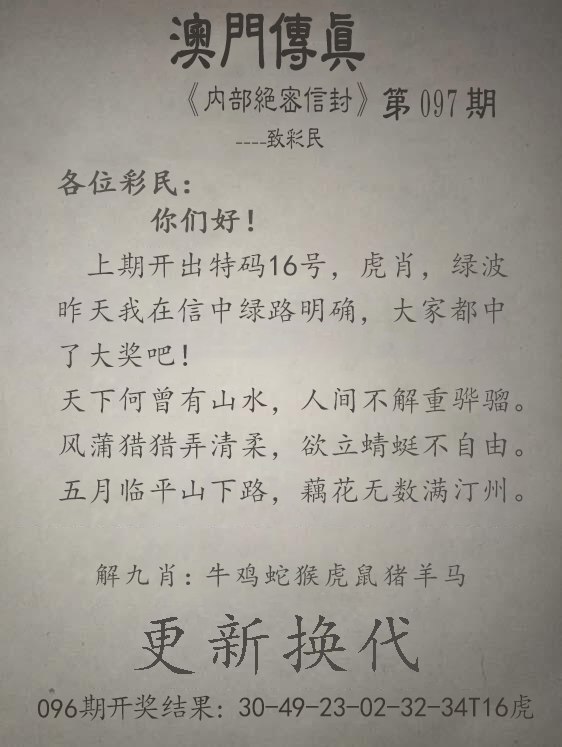 澳門傳眞
《内部絕密信封》第097期
----致彩民
各位彩民：
你们好！
上期开出特码16号，虎肖，绿波
昨天我在信中绿路明确，大家都中
了大奖吧！
天下何曾有山水，人间不解重骅骝。
风蒲猎猎弄清柔，欲立蜻蜓不自由。
五月临平山下路，藕花无数满汀州。
解九肖：牛鸡蛇猴虎鼠猪羊马
更新换代
096期开奖结果：30-49-23-02-32-34T16虎